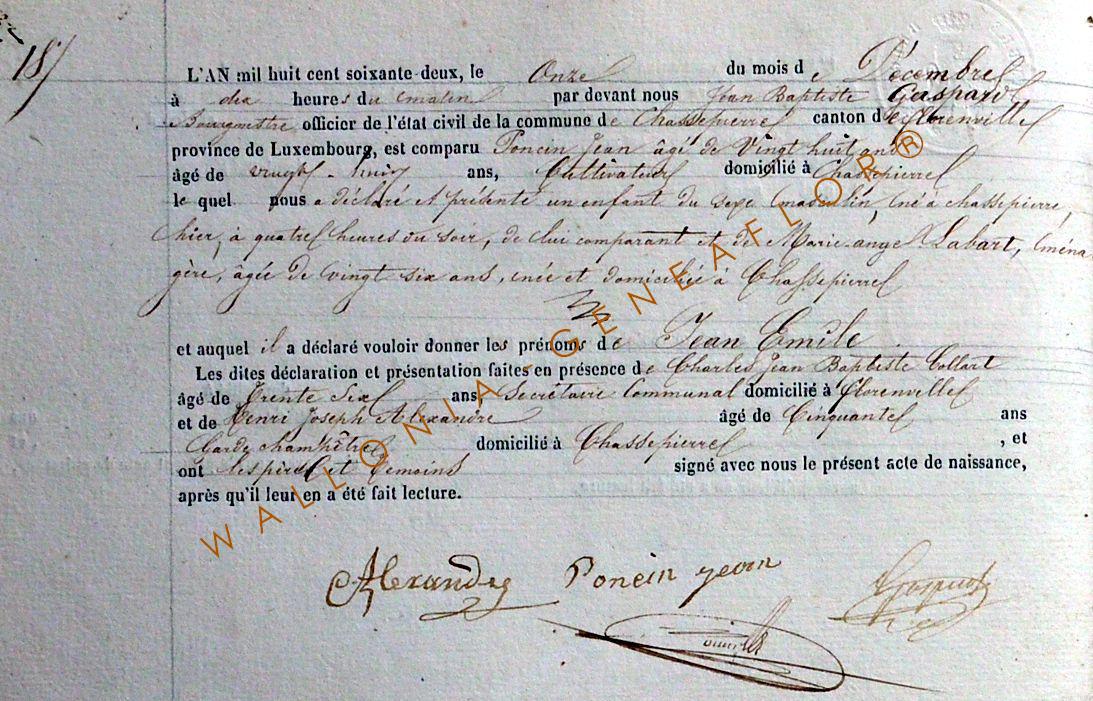 187
L'AN mil huit cent soixante-deux, le Onze du mois de Décembre
à dix heures du matin par devant nous Jean Baptiste Gaspard
Bourgmestre officier de l'état civil de la commune de Chassepierre canton de Florenville
province de Luxembourg, est comparu Poncin Jean âgé de Vingt huit ans
âgé de vingt-huit ans, Cultivateur domicilié à Chassepierre
le quel nous a déclaré et présenté un enfant du sexe masculin, né à chassepierre,
hier, à quatre heures du soir, de lui comparant et de Marie-ange Labart, ména
gère, âgée de vingt six ans, née et domiciliée à Chassepierre
et auquel il a déclaré vouloir donner les prénoms de Jean Emile.
Les dites déclaration et présentation faites en présence de Charles Jean Baptiste Collart
âgé de Trente Six ans, Secrétaire Communal domicilié à Florenville
et de Henri Joseph Alexandre âgé de Cinquante ans
Garde champêtre domicilié à Chassepierre , et
ont les père et témoins signé avec nous le présent acte de naissance,
après qu'il leur en a été fait lecture.
Alexandre Poncin jean Gaspard
WALLONIA-GENEAFLOR®